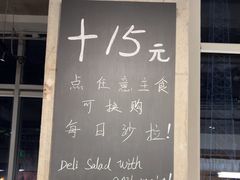 +15元
点任意主食
可换购
每日沙拉!
Deli Salad with